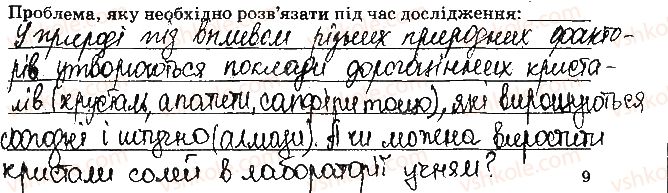 Проблема, яку необхідно розв'язати під час дослідження:
У природі під впливом різних природних факто-
рів утворюються поклади дорогоцінних криста-
лів (кришталі, апатити, сапфіри тощо), які вирощуються
сьогодні і штучно (алмази). А чи можна виростити
кристали солей в лабораторії учням?
9